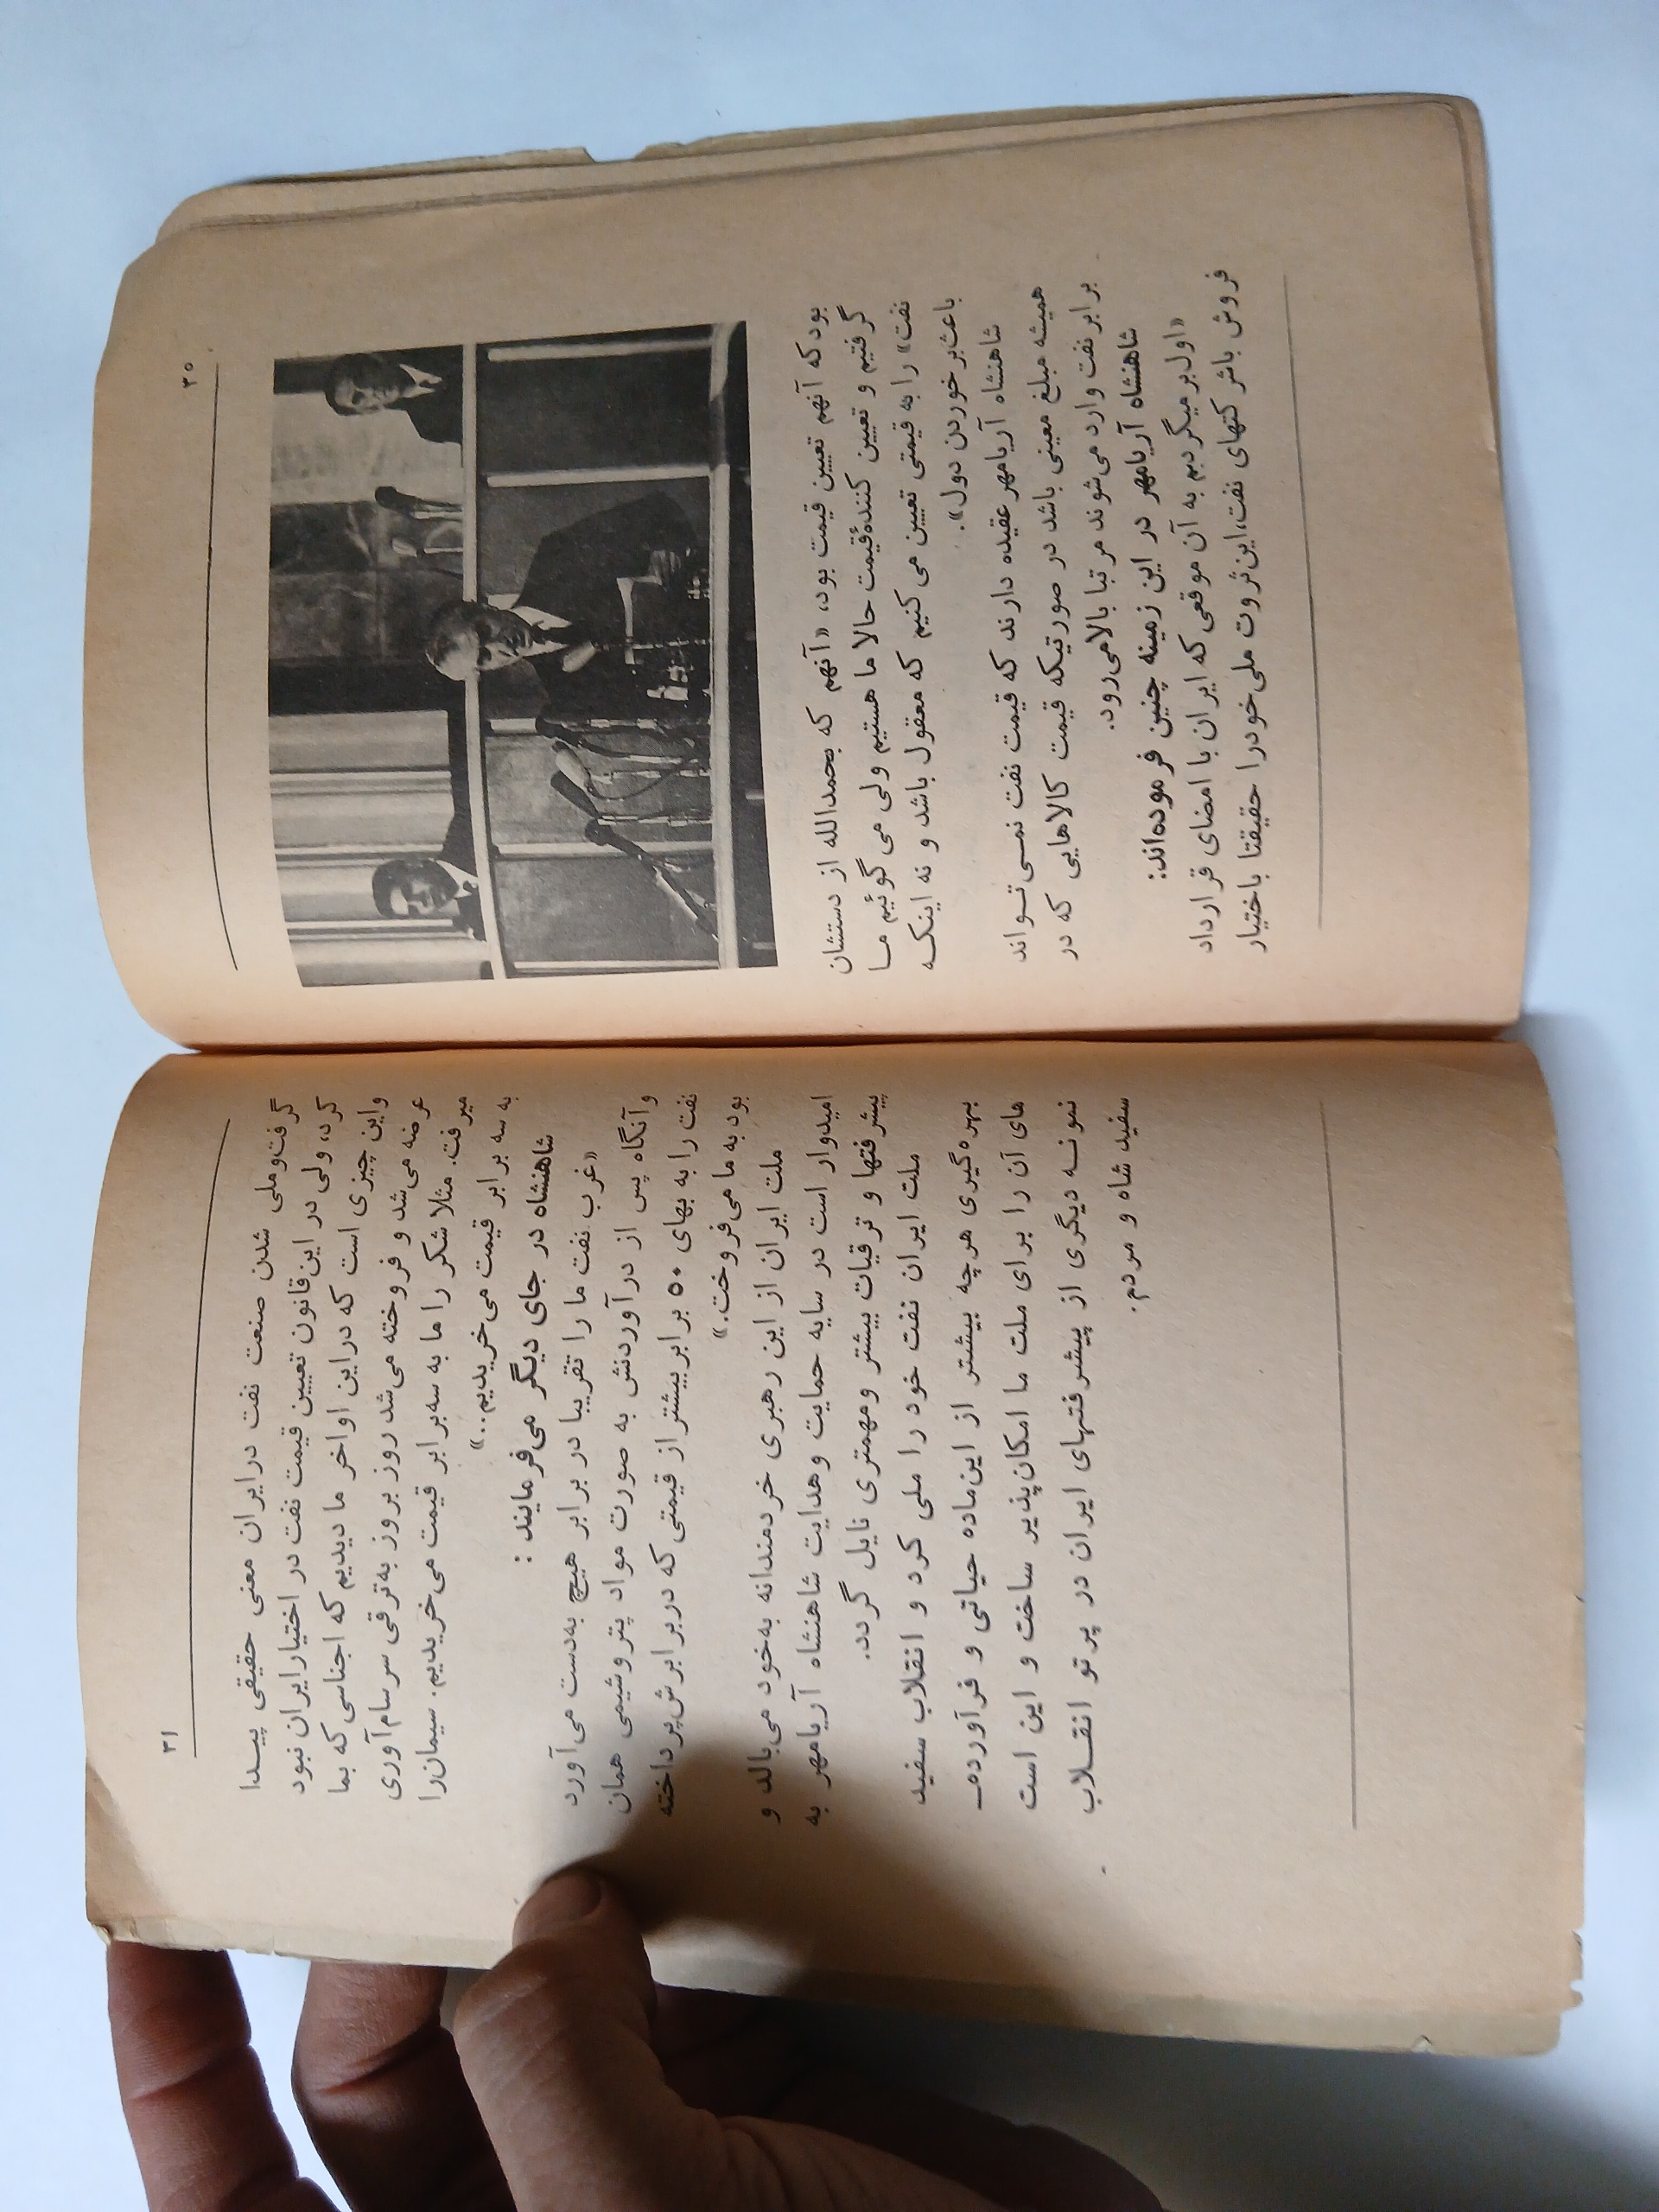 ۳۰
بود که آنهم تعیین قیمت بود، «آنهم که بحمدالله از دستشان
گرفتیم و تعیین کنندهٔ قیمت حالا ما هستیم ولی می گوئیم مـا
نفت» را به قیمتی تعیین می کنیم که معقول باشد و نه اینکـه
باعث بر خوردن دول».
شاهنشاه آریامهر عقیده دارند که قیمت نفت نمـی تـواند
همیشه مبلغ معینی باشد در صورتیکه قیمت کالاهایی که در
برابر نفت وارد می‌شوند مرتبا بالا می‌رود.
شاهنشاه آریامهر در این زمینه چنین فرموده‌اند:
«اول بر میگردیم به آن موقعی که ایران با امضای قرارداد
فروش باشرکتهای نفت، این ثروت ملی خودرا حقیقتا باختیار
۳۱
گرفت و ملی شدن صنعت نفت در ایران معنی حقیقی پیـدا
کرد، ولی در این قانون تعیین قیمت نفت در اختیار ایران نبود
و این چیزی است که در این اواخر ما دیدیم که اجناسی که بما
عرضه می‌شد و فروخته می‌شد روز بروز به ترقی سرسام آوری
میرفت. مثلا شکر را ما به سه برابر قیمت می‌خریدیم. سیمان را
به سه برابر قیمت می‌خریدیم..»
شاهنشاه در جای دیگر می‌فرمایند :
«غرب نفت ما را تقریبا در برابر هیچ به‌دست می‌آورد
و آنگاه پس از درآوردنش به صورت مواد پتروشیمی همان
نفت را به بهای ۵۰ برابر بیشتر از قیمتی که در برابرش پرداخته
بود به ما می‌فروخت.»
ملت ایران از این رهبری خردمندانه به‌خود می‌بالد و
امیدوار است در سایه حمایت و هدایت شاهنشاه آریامهر به
پیشرفتها و ترقیات بیشتر و مهمتری نایل گردد.
ملت ایران نفت خود را ملی کرد و انقلاب سفید
بهره‌گیری هرچه بیشتر از این ماده حیاتی و فرآورده‌ـ
های آن را برای ملت ما امکان‌پذیر ساخت و این است
نمونـه دیگری از پیشرفتهای ایران در پرتو انقـلاب
سفید شاه و مردم.